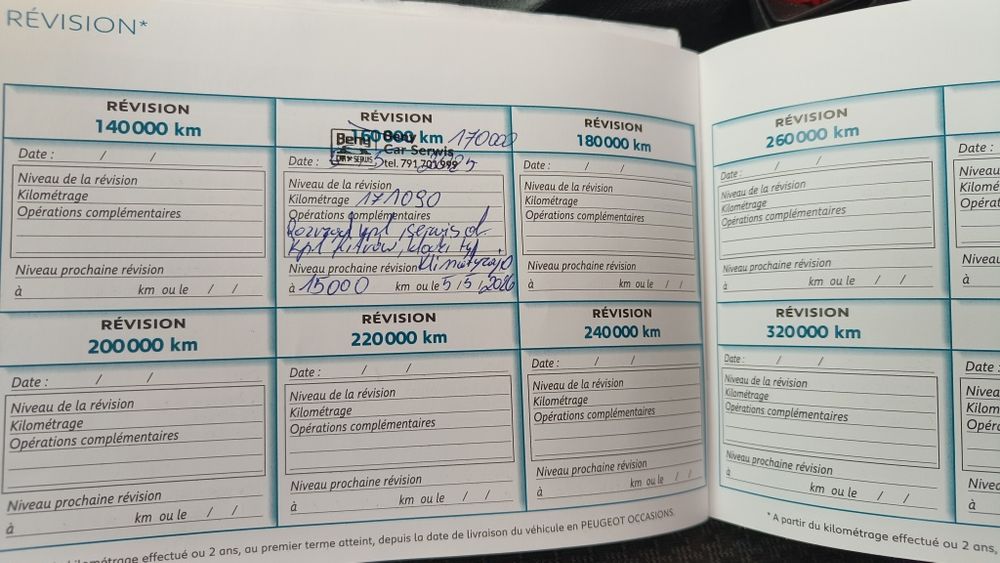 RÉVISION*
RÉVISION
140 000 km
Date : / /
Niveau de la révision
Kilométrage
Opérations complémentaires
Niveau prochaine révision
à km ou le / /
RÉVISION
160 000 km 170000
Beny
Car Serwis
tel. 791 701 999
Date : 2025
Niveau de la révision
Kilométrage 171090
Opérations complémentaires
Rozrząd kpl, serwis
kpl filtrów, klocki tył
Klimatyzacja
Niveau prochaine révision
à 15000 km ou le 5 / 5 / 2026
RÉVISION
180 000 km
Date : / /
Niveau de la révision
Kilométrage
Opérations complémentaires
Niveau prochaine révision
à km ou le / /
RÉVISION
260 000 km
Date : / /
Niveau de la révision
Kilométrage
Opérations complémentaires
Niveau prochaine révision
à km ou le / /
Date :
Niveau
Kilomé
Opérat
Niveau
à
RÉVISION
200 000 km
Date : / /
Niveau de la révision
Kilométrage
Opérations complémentaires
Niveau prochaine révision
à km ou le / /
RÉVISION
220 000 km
Date : / /
Niveau de la révision
Kilométrage
Opérations complémentaires
Niveau prochaine révision
à km ou le / /
RÉVISION
240 000 km
Date : / /
Niveau de la révision
Kilométrage
Opérations complémentaires
Niveau prochaine révision
à km ou le / /
RÉVISION
320 000 km
Date : / /
Niveau de la révision
Kilométrage
Opérations complémentaires
Niveau prochaine révision
à km ou le / /
Date
Nivea
Kilom
Opéra
Nivea
à
kilométrage effectué ou 2 ans, au premier terme atteint, depuis la date de livraison du véhicule en PEUGEOT OCCASIONS.
* A partir du kilométrage effectué ou 2 ans,